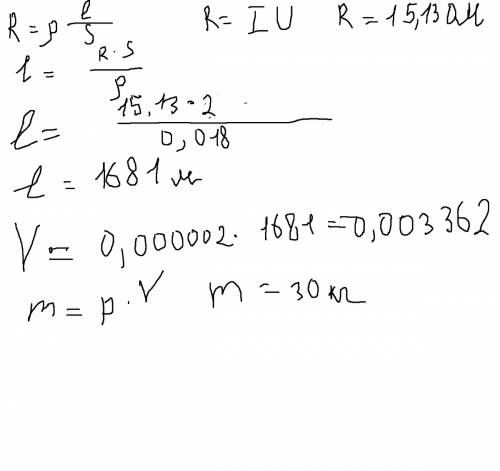 R = ρ l/S   R = I U   R = 15,13 Ом
l = R·S/ρ
l = 15,13·2/0,018
l = 1681 м
V = 0,000002·1681 = 0,003362
m = ρ·V   m = 30 кг